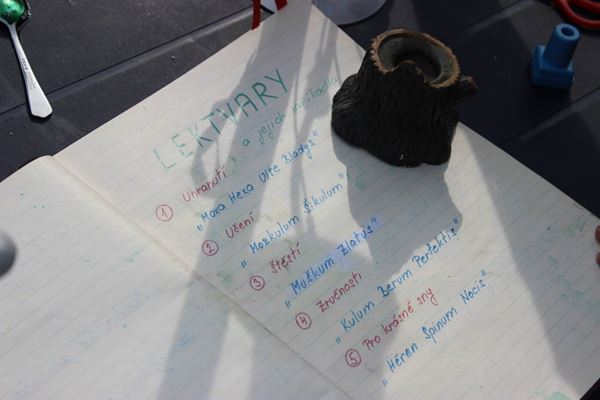 LEKTVARY
a jejich zaříkadla
① Uhranutí
"Moxa Hexa Ulte Zladys"
② Učení
"Mozkulum Šikulum"
③ Štěstí
"Muškum Zlatus"
④ Zručnosti
"Kulum Berum Perfektis"
⑤ Pro krásné sny
"Héren Spinum Nocis"